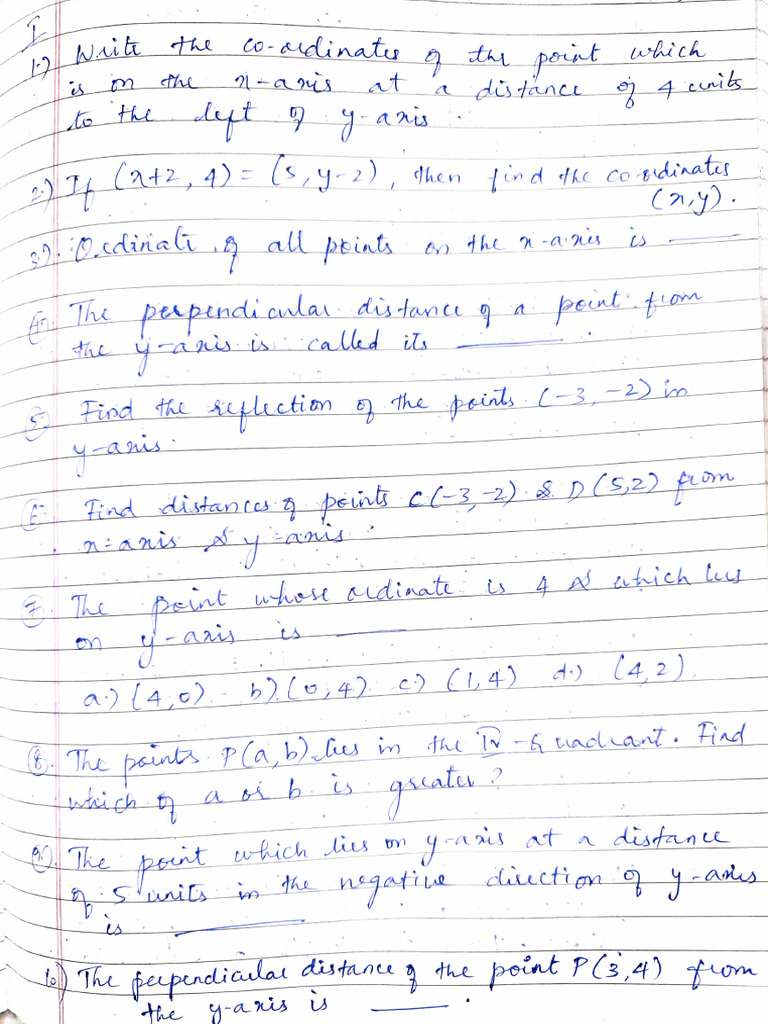 I
1.) Write the co-ordinates of the point which
is on the x-axis at a distance of 4 units
to the left of y-axis.
2.) If (x+2, 4) = (5, y-2), then find the co-ordinates
(x,y).
3.) Ordinate of all points on the x-axis is ____
4. The perpendicular distance of a point from
the y-axis is called its ____.
5. Find the reflection of the points (-3, -2) in
y-axis.
6. Find distances of points C(-3,-2) & D(5,2) from
x-axis & y-axis.
7. The point whose ordinate is 4 & which lies
on y-axis is ____
a.) (4,0) b) (0,4) c) (1,4) d.) (4,2)
8. The points P(a,b) lies in the IV-Quadrant. Find
which of a or b is greater?
9. The point which lies on y-axis at a distance
of 5 units in the negative direction of y-axis
is ____
10) The perpendicular distance of the point P(3,4) from
the y-axis is ____.